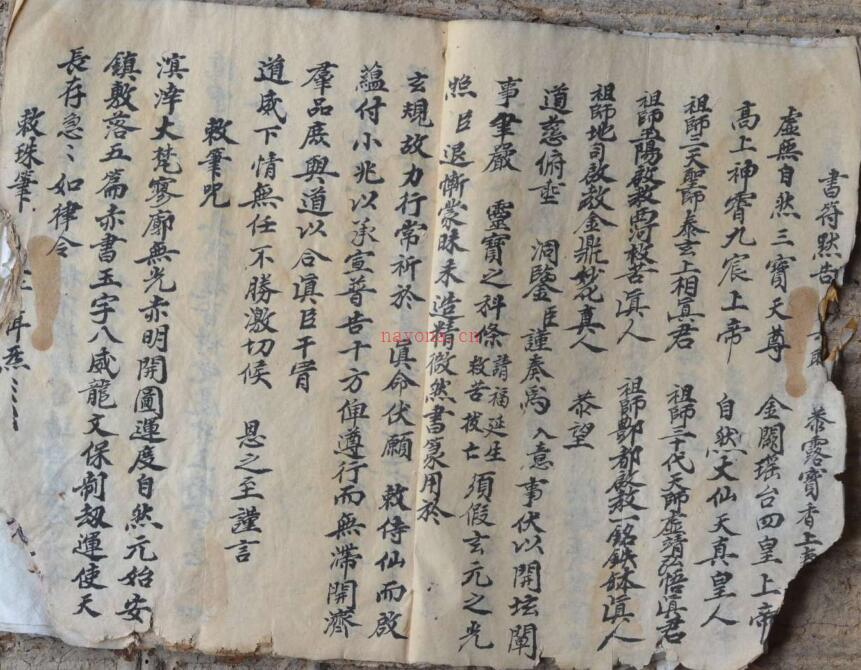 書符默告
恭露寶香上
虛無自然三寶天尊 金闕瑶台四皇上帝
高上神霄九宸上帝 自然大仙天真皇人
祖師三天聖師泰玄上相真君 祖師三十代天師虛靖弘悟真君
祖師玉陽啟教西河救苦真人 祖師酆都啟教一銘鉄缽真人
祖師地司啟教金鼎妙化真人 恭望
道慈俯垂 洞鑒臣謹奏為 入意事伏以開坛闡
事聿嚴 靈寶之科條請福延生救苦拔亡須假玄元之光
照臣退慚蒙昧未造精微然書篆用於
玄規故力行常祈於 真命伏願 敕侍仙而啟
蘊付小兆以承宣普告十方俾遵行而無滯開濟
羣品庶興道以合真臣干冐
道威下情無任不勝激切候 恩之至謹言
敕筆咒
溟涬大梵寥廓無光赤明開圖運度自然元始安
鎮敷落五篇赤書玉字八威龍文保制劫運使天
長存急〻如律令
敕珠筆
nayona.cn